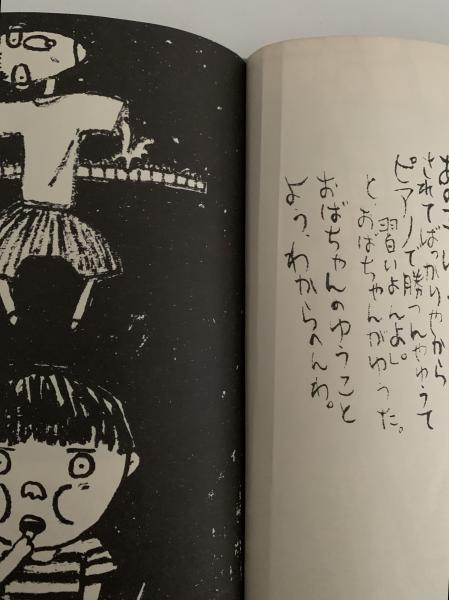 されてばっかりやから
ピアノで勝つんやゆうて
習いよんよ。
とおばちゃんがゆうた。
おばちゃんのゆうこと
よう、わからへんわ。